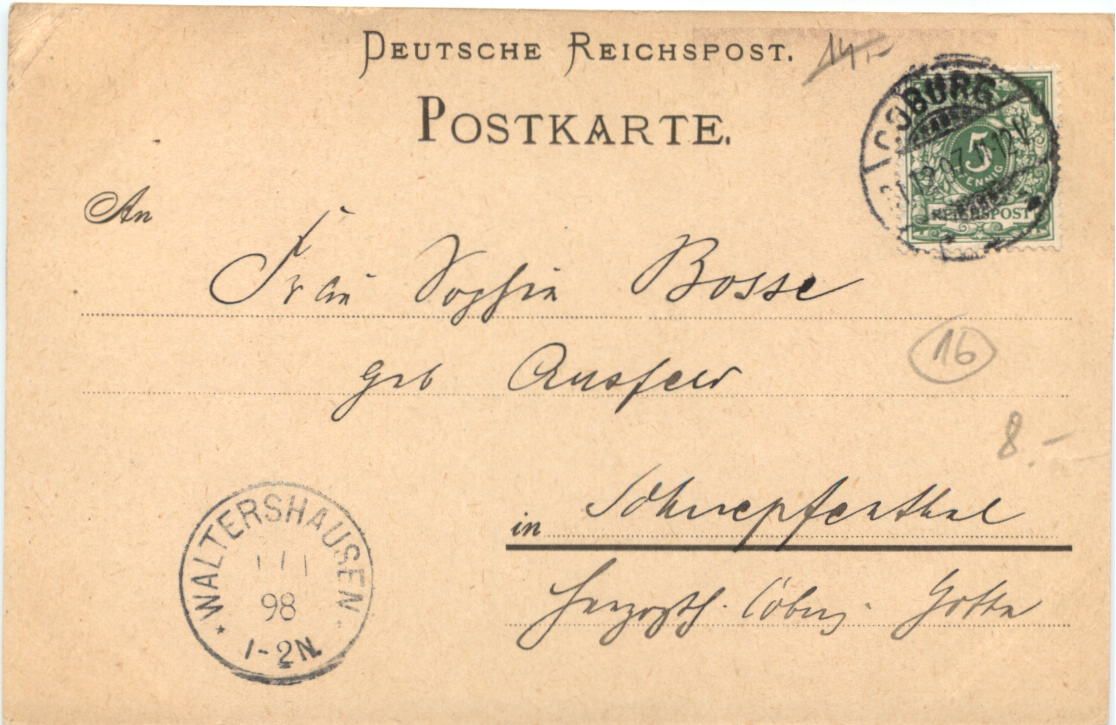 DEUTSCHE REICHSPOST.
14.-
POSTKARTE.
COBURG
12V.
5
PFENNIG
REICHSPOST
An
Frau Sophie Bosse
16
geb Ausfeld
8.-
in Schnepfenthal
Herzogth. Coburg Gotha
WALTERSHAUSEN
1 1
98
1-2N.